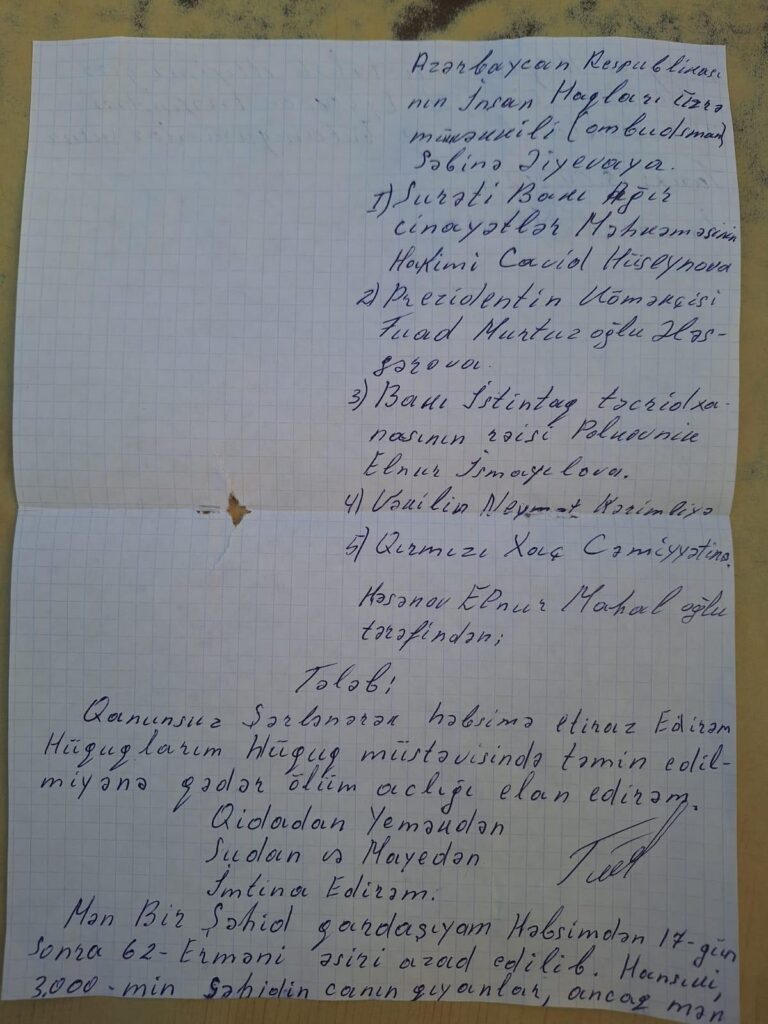 Azərbaycan Respublikası
nın İnsan Haqları üzrə
müvəkkili (ombudsman)
Səbinə Əliyevaya.
1) Surəti Bakı Ağir
cinayətlər Məhkəməsinin
Hakimi Cavid Hüseynova
2) Prezidentin Köməkçisi
Fuad Murtuz oğlu Ələs-
gərova.
3) Bakı İstintaq təcridxa-
nasının rəisi Polkovnik
Elnur İsmayılova.
4) Vəkilin Neymət Kərimliyə
5) Qırmızı Xaç Cəmiyyətinə.
Həsənov Elnur Mahal oğlu
tərəfindən;
Tələb!
Qanunsuz Şərlənərək həbsimə etiraz Edirəm
Hüquqlarım Hüquq müstəvisində təmin edil-
miyənə qədər ölüm aclığı elan edirəm.
Qidadan Yeməkdən
Sudan və Mayedən
İmtina Edirəm.
Mən Bir Şəhid qardaşıyam Həbsimdən 17-gün
sonra 62-Erməni əsiri azad edilib. Hansıki,
3.000-min Şəhidin canın qıyanlar, ancaq mən